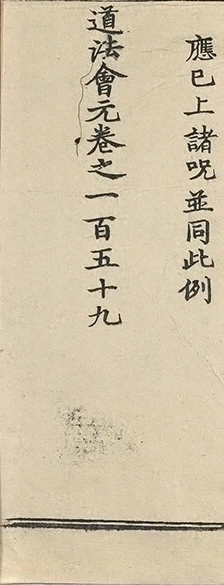 應巳上諸呪並同此例
道法會元卷之一百五十九